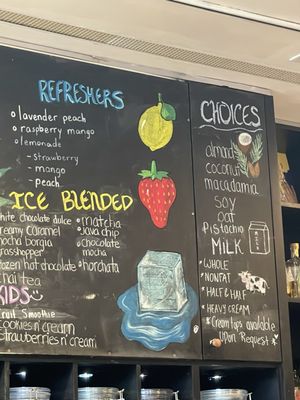 REFRESHERS
lavender peach
raspberry mango
lemonade
- strawberry
- mango
- peach
ICE BLENDED
white chocolate dulce
creamy caramel
mocha borgia
grasshopper
frozen hot chocolate
chai tea
matcha
Java chip
chocolate mocha
horchata
KIDS
Fruit Smoothie
cookies n' cream
strawberries n' cream
CHOICES
almond
coconut
macadamia
soy
oat
Pistachio
MILK
WHOLE
NONFAT
HALF & HALF
HEAVY CREAM
available
upon Request